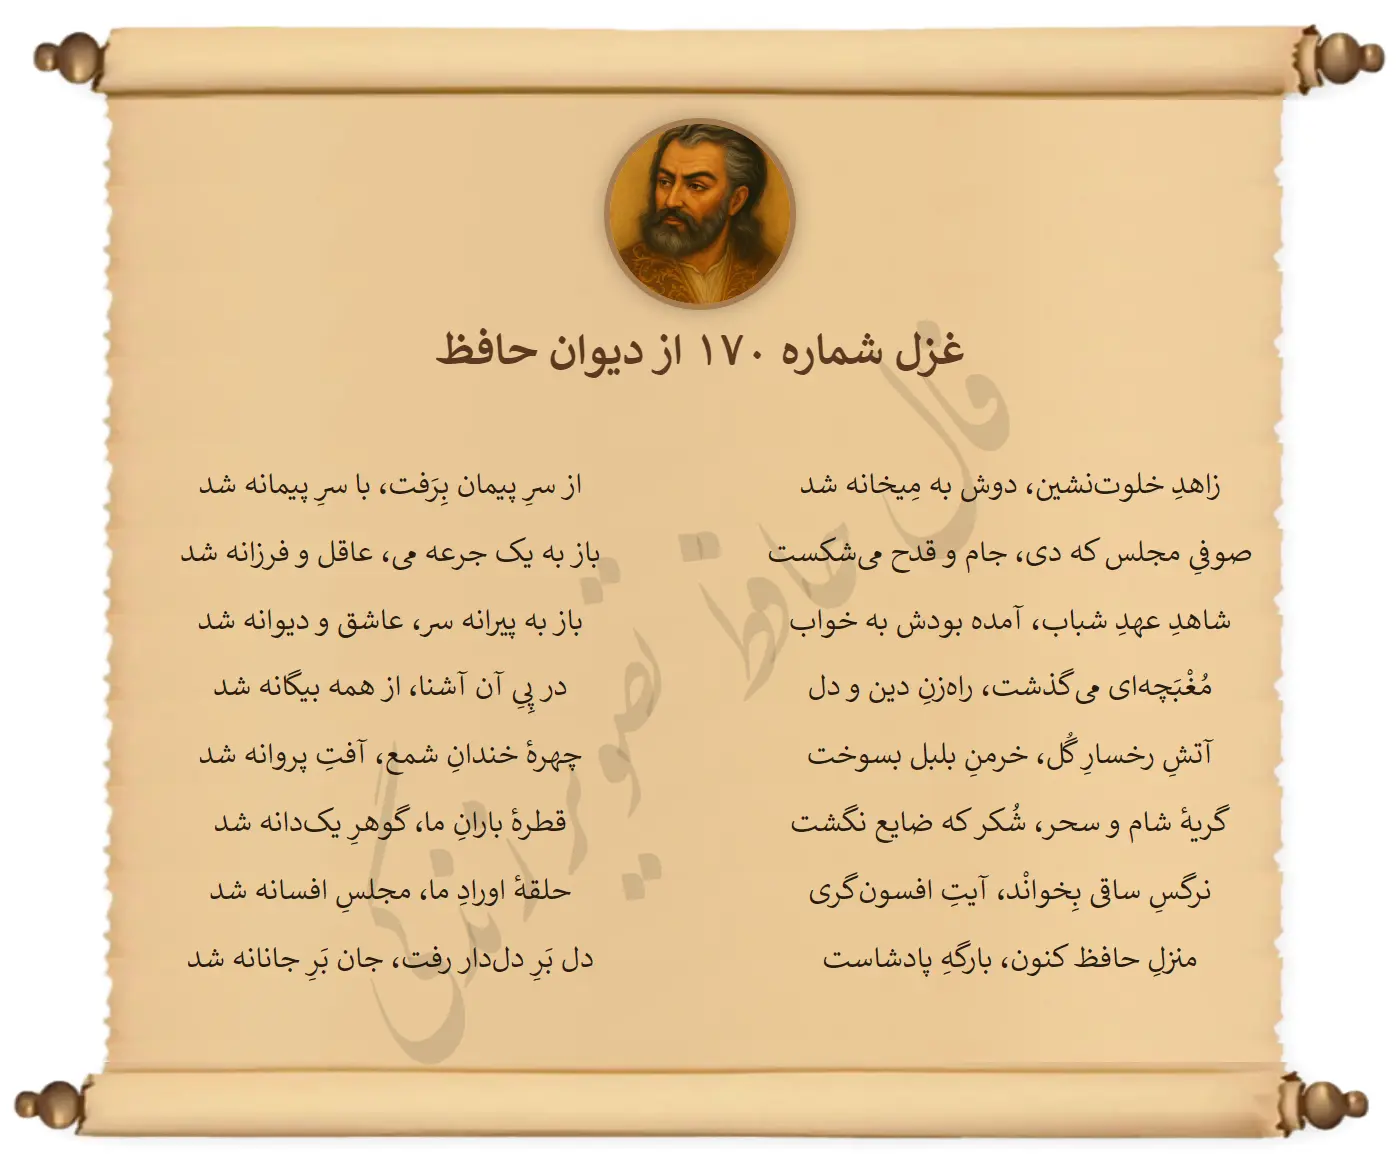 غزل شماره ۱۷۰ از دیوان حافظ
زاهدِ خلوت‌نشین، دوش به مِیخانه شد
از سرِ پیمان بِرَفت، با سرِ پیمانه شد
صوفیِ مجلس که دی، جام و قدح می‌شکست
باز به یک جرعه می، عاقل و فرزانه شد
شاهدِ عهدِ شباب، آمده بودش به خواب
باز به پیرانه سر، عاشق و دیوانه شد
مُغْبَچه‌ای می‌گذشت، راه‌زنِ دین و دل
در پِیِ آن آشنا، از همه بیگانه شد
آتشِ رخسارِ گُل، خرمنِ بلبل بسوخت
چهرهٔ خندانِ شمع، آفتِ پروانه شد
گریهٔ شام و سحر، شُکر که ضایع نگشت
قطرهٔ بارانِ ما، گوهرِ یک‌دانه شد
نرگسِ ساقی بِخوانْد، آیتِ افسون‌گری
حلقهٔ اورادِ ما، مجلسِ افسانه شد
منزلِ حافظ کنون، بارگهِ پادشاست
دل بَرِ دل‌دار رفت، جان بَرِ جانانه شد
فال حافظ تصویر زندگی